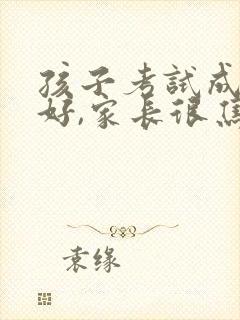 孩子考試成
好,家長很焦
袁缘